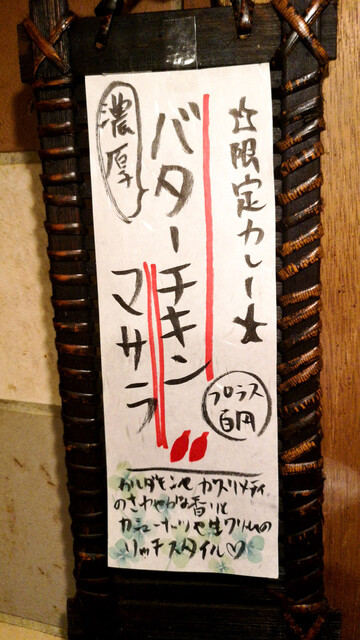 ☆限定カレー★
濃厚
バターチキン
マサラ
プラス
百円
カルダモンやカスリメティ
のさわやかな香りと
カシューナッツや生クリームの
リッチスタイル♡